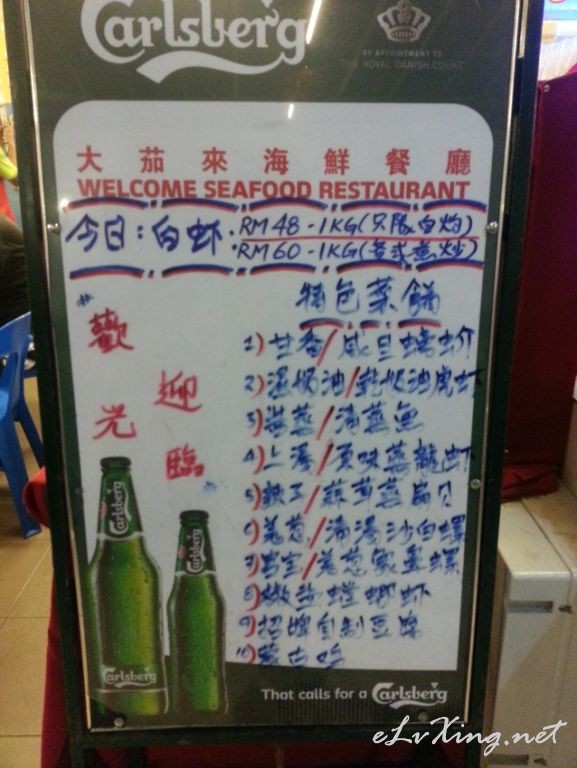 Carlsberg
BY APPOINTMENT TO
THE ROYAL DANISH COURT
大茄來海鮮餐廳
WELCOME SEAFOOD RESTAURANT
今日：白虾：RM 48 - 1KG (只限白灼)
RM 60 - 1KG (各式煮炒)
"歡迎光臨"
特色菜餚
1) 甘香/咸旦螃蚧
2) 湿奶油/乾奶油虎虾
3) 清蒸魚
4) 上湯/原味蒸龍虾
5)
6) 姜葱/清湯沙白螺
7) 姜葱
8) 螳螂虾
9) 招牌自制豆腐
10) 蒙古鸡
Carlsberg
Carlsberg
That calls for a Carlsberg
eLvXing.net